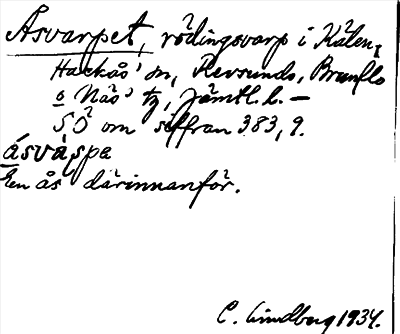 Åsvarpet, rödingsvarp i Kälen,
Hackås' sn, Revsunds, Brunflo
o Näs' tg, Jämtl. l. –
SÖ om siffran 383,9.
åsvàspa
En ås därinnanför.
C. Lindberg 1934.